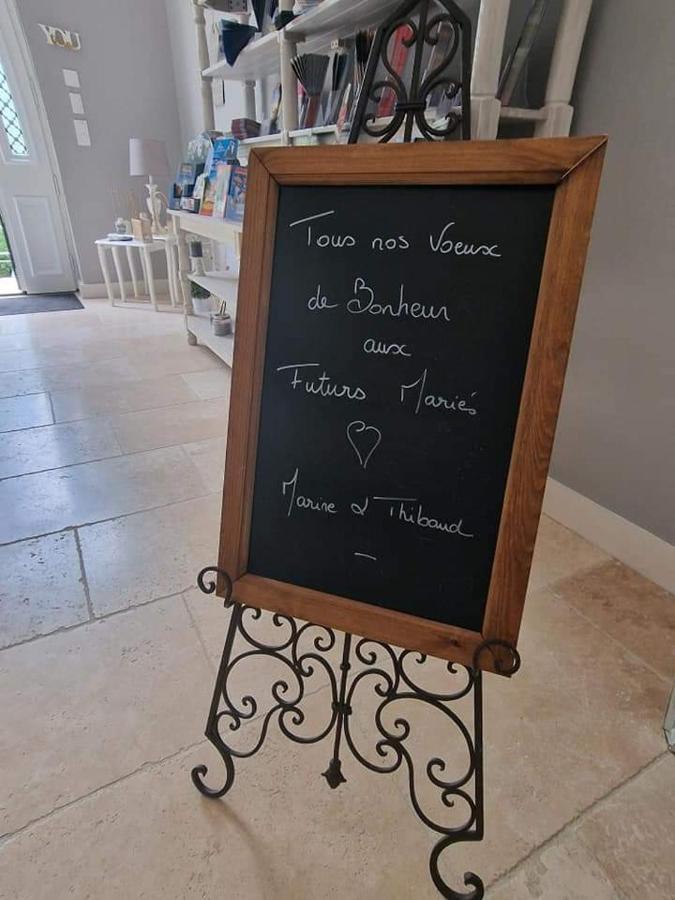 YOU
Tous nos Voeux
de Bonheur
aux
Futurs Mariés
Marine & Thibaud